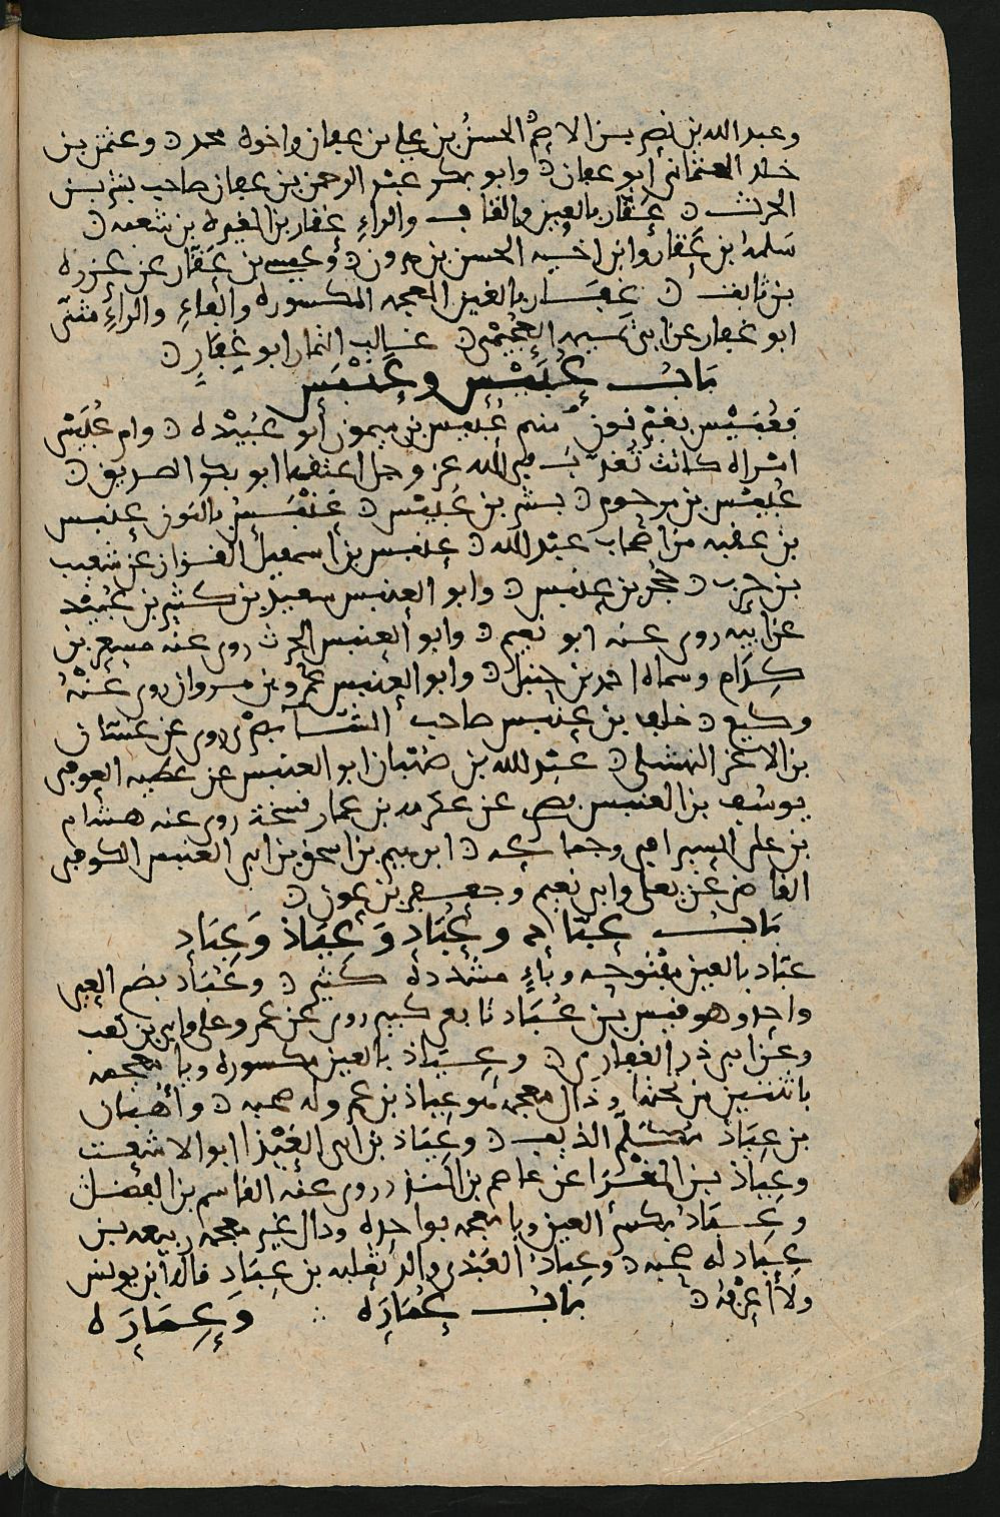 وعبد الله بن نصر بن الاصم الحسن بن علي بن عفان واخوه محمد ۵ وعثمن بن
خلد العثماني أبو عفان ۵ وابو بكر عبد الرحمن بن عفان صاحب بشر بن
الحرث ۵ عَقَّار بالعين والقاف والراءِ عقار بن المغيره بن شعبه ۵
سَلمة بن عَقار وابن اخيه الحسن بن هرون ۵ وعيسى بن عَقَّار عن عزره
بن ثابت ۵ غِفَار بالغين المعجمه المكسوره والفاءِ والراءِ مثنّى
ابو غفار عن ابي تميمه الهُجَيْمي ۵ غالب التمار ابو غِفَارٍ ۵
بَابُ عُبَيْسٍ وعَنْبَسٍ
فعُبَيْس بغير نون منهم عُبيس بن ميمون أبو عُبَيْدة ۵ وام عُبَيْس
امراه كانت تُعَذّب في الله عز وجل اعتقها ابو بكر الصديق ۵
عُبَيْس بن مرحوم ۵ بشر بن عُبَيْس ۵ عَنْبَسٌ بالنون عنبس
بن عقبه من اصحاب عبد الله ۵ عنبس بن اسمعيل القزاز عن شعيب
بن حرب ۵ حُجْر بن عنبس ۵ وابو العنبس سعيد بن كثير بن عُبَيْد
عن ابيه روى عنه ابو نعيم ۵ وابو العنبس الحرث روى عنه مسعر بن
كِدَام وسماه احمد بن حنبل ۵ وابو العنبس عمرو بن مروان روى عَنْهُ
وكيع ۵ خلف بن عنبس صاحب بصرى روى عن غسان
بن الاغر النهشلي ۵ عبد الله بن صهبان ابو العنبس عن عطيه العوفي
يوسف بن العنبس بصرى عن عكرمه بن عمار نسخة روى عنه هشام
بن علي السيرافي وجماعه ۵ ابرهيم بن اسحق بن ابي العنبس الكوفي
القاضي عن يعلى وابي نعيم وجعفر بن عون ۵
بَابُ عبَّادٍ وعُبَادٍ وَعِيَاذٍ وَعِبَادٍ
عبّاد بالعين مفتوحه وباءٍ مشدده كثير ۵ وعُبَاد بضم العين
واحد وهو قيس بن عُبَاد تابعي كبير روى عن عمر وعلي وابي بن كعب
وعن ابي ذر الغفاري ۵ وعِيَاذ بالعين مكسوره ويا معجمه
باثنتين من تحتها وذال معجمه هو عياذ بن عمرو له صحبه ۵ وأُهْبان
بن عِيَاذ مُكَلّم الذيب ۵ وعِيَاذ بن ابي العَيْذا ابوالاشعث
وعِيَاذ بن المَغْرَا عن عاصم بن المنذر روى عنه القاسم بن الفضل
وعِبَاد بكسر العين وبا معجمه بواحده ودال غير معجمه ربيعه بن
عِبَاد له صحبه ۵ وعِبادٌ العَبْدي والد ثعلبه بن عِبَادٍ قاله ابن يونس
ولا أعْرِفهُ ۵ بَابُ عُمَارَه وَعِمَارَه